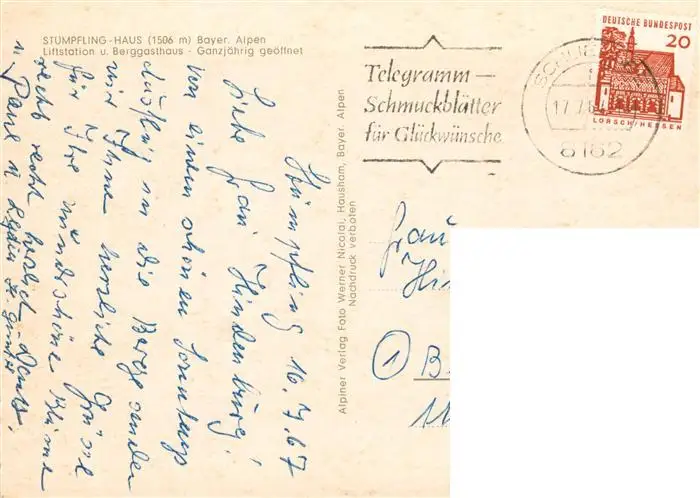 STÜMPFLING-HAUS (1506 m) Bayer. Alpen
Liftstation u. Berggasthaus - Ganzjährig geöffnet
Stümpfling 16.7.67
Liebe Frau Hindenburg!
Von einem schönen Sonntags
ausflug in die Berge senden
wir Ihnen herzliche Grüße
für Ihre wunderschöne Blume
recht recht herzlich Dank.
Alpiner Verlag Foto Werner Nicolai, Hausham, Bayer. Alpen
Nachdruck verboten
Telegramm-
Schmuckblätter
für Glückwünsche
17.7.6
8162
DEUTSCHE BUNDESPOST
20
LORSCH/HESSEN
Frau
Hin
① B